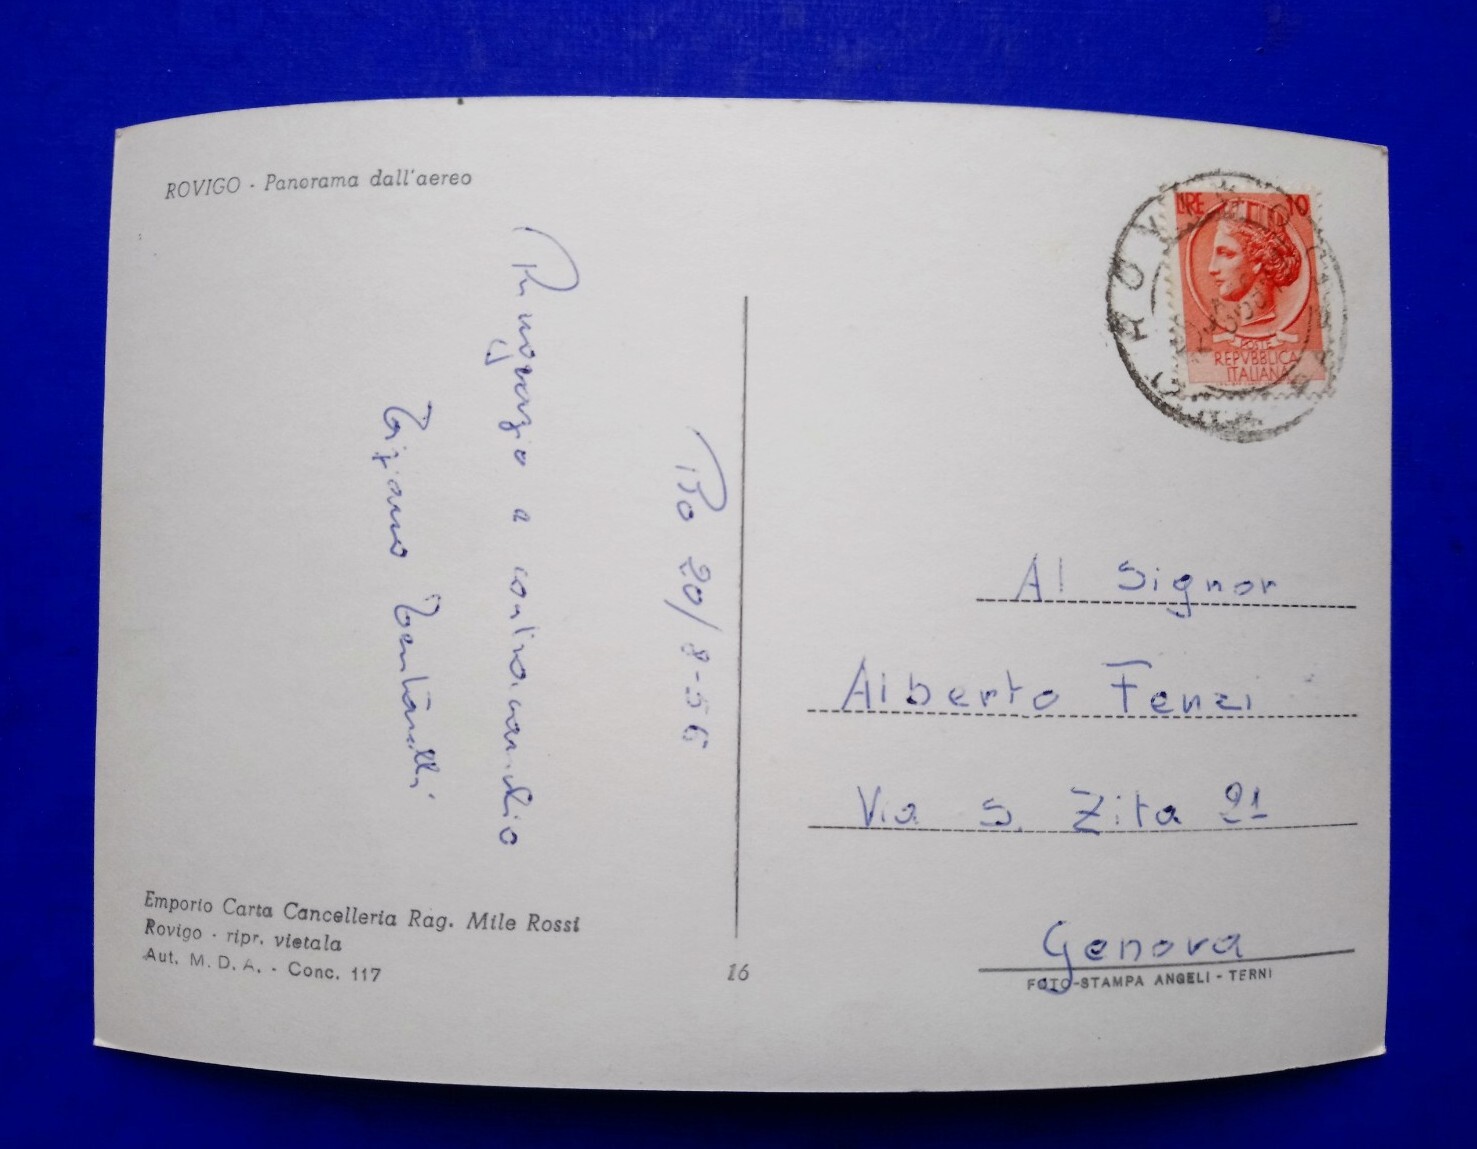 ROVIGO - Panorama dall'aereo
Ro 20/8-56
Ringrazio e contraccambio
Tiziano
Emporio Carta Cancelleria Rag. Mile Rossi
Rovigo - ripr. vietata
Aut. M. D. A. - Conc. 117
16
LIRE 10
POSTE
REPVBBLICA
ITALIANA
Al Signor
Alberto Fenzi
Via S. Zita 21
Genova
FOTO-STAMPA ANGELI - TERNI